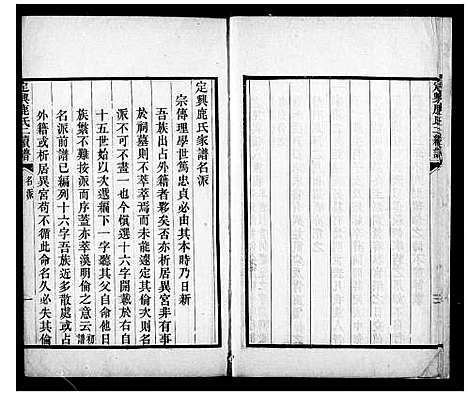 定興鹿氏二續譜
三
定興鹿氏家譜名派
宗傳理學世篤忠貞必由其本時乃日新
吾族出占外籍者夥矣否亦析居異宮非有事
於祠墓則不萃萃焉而未能遽定其倫次則名
派不可不盡一也今愼選十六字開載於右自
十五世始名以派選綴下一字聽其父自命其日
族繁不難按派而序蓋亦萃渙明倫之意云初譜
名派前譜已編列十六字吾族近多散處或占
外籍或析居異宮苟不循此命名久必失其倫
定興鹿氏二續譜
名派
一